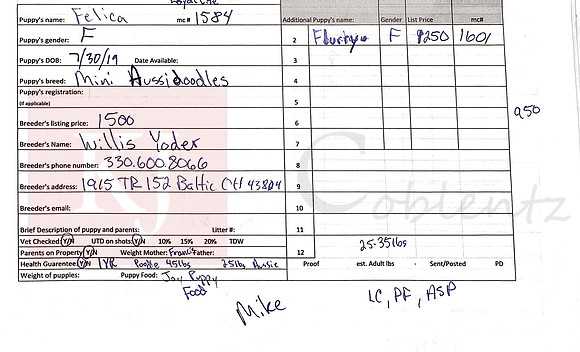 Puppy's name: Felica mc# 1584
Additional Puppy's name: Gender List Price mc#
Puppy's gender: F
2 Flurry F 1250 1601
Puppy's DOB: 7/30/19 Date Available:
3
Puppy's breed: Mini Aussidoodles
4
Puppy's registration:
(if applicable)
5
Breeder's listing price: 1500
6
950
Breeder's Name: Willis Yoder
7
Breeder's phone number: 330.600.8066
8
Breeder's address: 1915 TR 152 Baltic OH 43804
9
Breeder's email:
10
Coblentz
Brief Description of puppy and parents: Litter#:
11
Vet Checked: Y/N UTD on shots: Y/N 10% 15% 20% TDW
25-35lbs
Parents on Property Y/N Weight Mother: Father:
12
Health Guarentee Y/N 1YR Poodle 45lbs 25lbs Aussie
Proof est. Adult lbs Sent/Posted PD
Weight of puppies: Puppy Food: Joy Puppy
Food
Mike
LC, PF, ASP